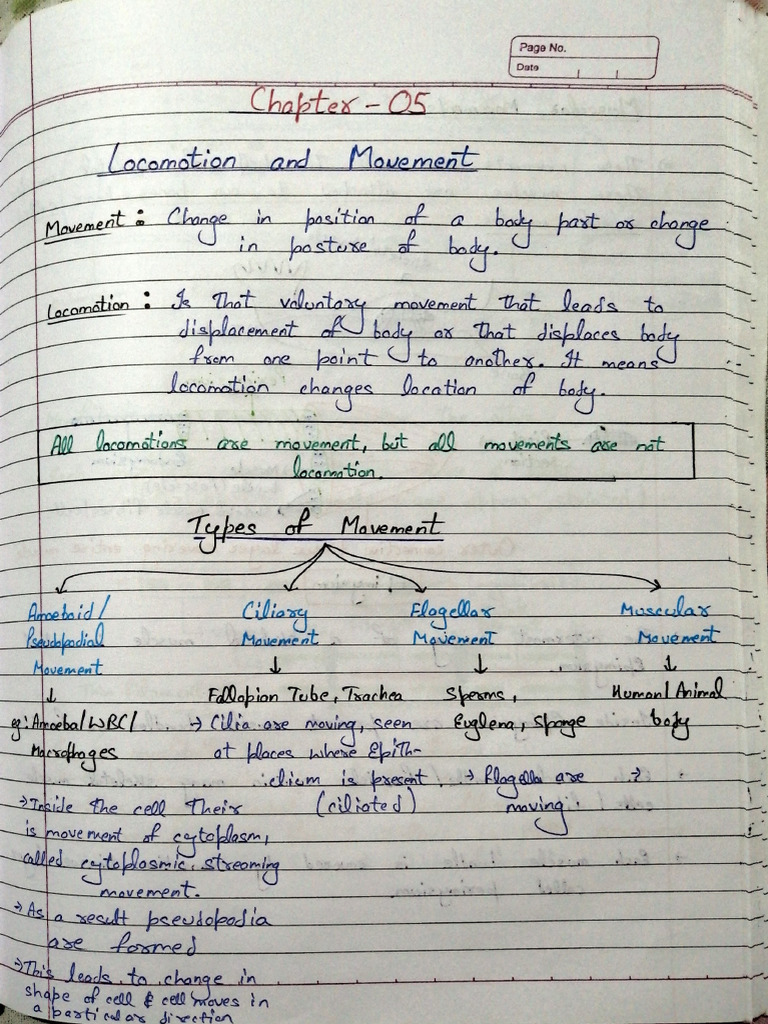 Page No.
Date
Chapter - 05
Locomotion and Movement
Movement : Change in position of a body part or change
in posture of body.
Locomotion : Is That voluntary movement that leads to
displacement of body or that displaces body
from one point to another. It means
locomotion changes location of body.
All locomotions are movement, but all movements are not
locomotion.
Types of Movement
Amoeboid/
Pseudopodial
Movement
↓
eg: Amoeba/WBC/
Macrophages
→ Inside the cell Their
is movement of cytoplasm,
called cytoplasmic streaming
movement.
→ As a result pseudopodia
are formed
→ This leads to change in
shape of cell & cell moves in
a particular direction
Ciliary
Movement
↓
Fallopian Tube, Trachea
→ Cilia are moving, seen
at places where Epith-
elium is present
(ciliated)
Flagellar
Movement
↓
Sperms,
Euglena, Sponge
→ Flagella are
moving
Muscular
Movement
↓
Human/Animal
body
→